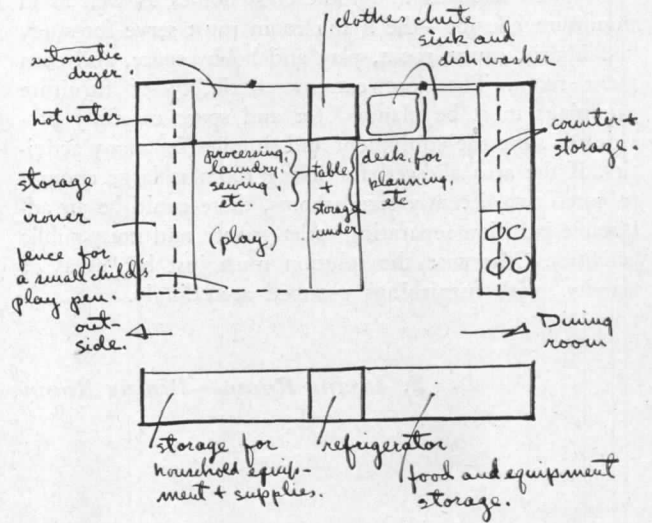 clothes chute
sink and
dish washer
automatic
dryer.
hot water
counter +
storage.
processing,
laundry,
sewing
etc
(play)
table
+
storage
under
desk, for
planning,
etc
storage
fence for
a small child's
play pen.
out-
side.
Dining
room
storage for
household equip-
ment + supplies.
refrigerator
food and equipment
storage.